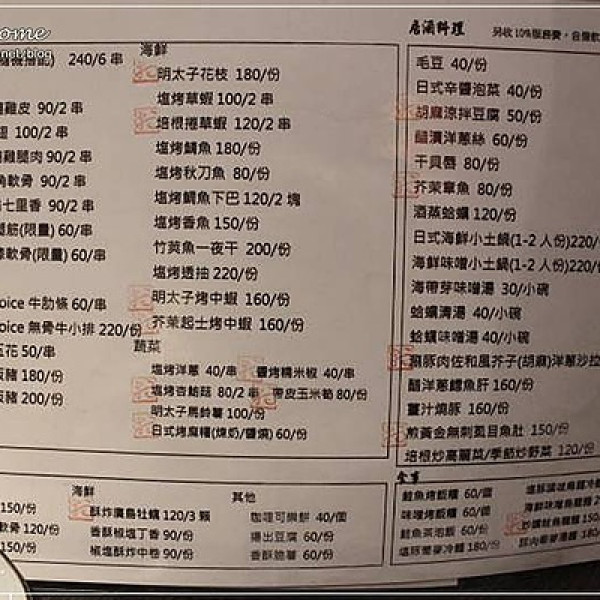 ome
.net/blog
240/6 串
雞皮 90/2 串
100/2 串
雞腿肉 90/2 串
軟骨 90/2 串
七里香 90/2 串
筋(限量) 60/串
軟骨(限量) 60/串
oice 牛肋條 60/串
oice 無骨牛小排 220/份
五花 50/串
豬 180/份
豬 200/份
海鮮
明太子花枝 180/份
塩烤草蝦 100/2 串
培根捲草蝦 120/2 串
塩烤鯛魚 180/份
塩烤秋刀魚 80/份
塩烤鯛魚下巴 120/2 塊
塩烤香魚 150/份
竹莢魚一夜干 200/份
塩烤透抽 220/份
明太子烤中蝦 160/份
芥茉起士烤中蝦 160/份
蔬菜
塩烤洋蔥 40/串 醬烤糯米椒 40/串
塩烤杏鮑菇 80/2 串 帶皮玉米筍 80/份
明太子馬鈴薯 100/份
日式烤麻糬(煉奶/醬燒) 60/份
居酒料理 另收10%服務費，自備飲
毛豆 40/份
日式辛醬泡菜 40/份
胡麻涼拌豆腐 50/份
醋漬洋蔥絲 60/份
干貝唇 80/份
芥茉章魚 80/份
酒蒸蛤蠣 120/份
日式海鮮小土鍋(1-2 人份)220/
海鮮味噌小土鍋(1-2 人份)220/份
海帶芽味噌湯 30/小碗
蛤蠣清湯 40/小碗
蛤蠣味噌湯 40/小碗
涮豚肉佐和風芥子(胡麻)洋蔥沙拉
醋洋蔥鱈魚肝 160/份
薑汁燒豚 160/份
煎黃金無刺虱目魚肚 150/份
培根炒高麗菜/季節炒野菜 120/份
150/份
軟骨 120/份
150/份
海鮮
酥炸廣島牡蠣 120/3 顆
香酥椒塩丁香 90/份
椒塩酥炸中卷 90/份
其他
咖哩可樂餅 40/個
揚出豆腐 60/份
香酥脆薯 60/份
食事
鮭魚烤飯糰 60/個
味噌烤飯糰 60/個
鮭魚茶泡飯 60/份
塩豚蕎麥冷麵 180/份
150/份
180/